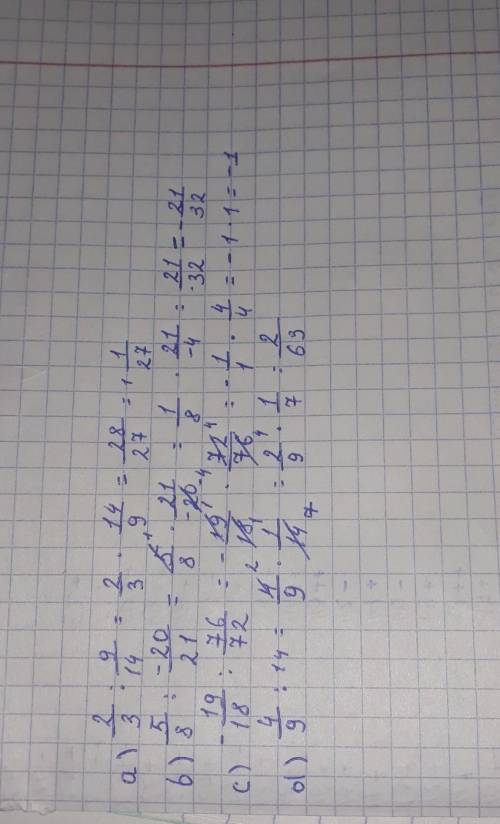 a) 2/3 : 9/14 = 2/3 · 14/9 = 28/27 = 1 1/27
b) 5/8 : -20/21 = 5/8 · 21/-20 = 1/8 · 21/-4 = 21/-32 = -21/32
c) -19/18 : 76/72 = -19/18 · 72/76 = -1/1 · 4/4 = -1 · 1 = -1
d) 4/9 : 14 = 4/9 · 1/14 = 2/9 · 1/7 = 2/63